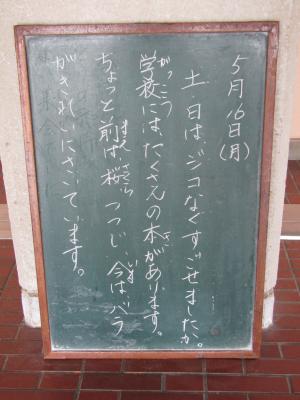 5月16日(月)
土日は、ジコなくすごせましたか。
学校には、たくさんの木があります。
ちょっと前は、桜 つつじ、今は、バラ
がきれいにさいています。